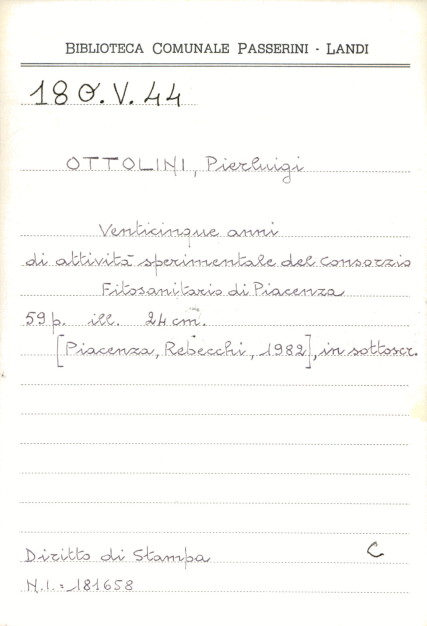 BIBLIOTECA COMUNALE PASSERINI - LANDI
18 O.V.44
OTTOLINI, Pierluigi
Venticinque anni
di attività sperimentale del Consorzio
Fitosanitario di Piacenza
59 p. ill. 24 cm.
[Piacenza, Rebecchi, 1982], in sottoscr.
Diritto di Stampa C
N.I.: 181658